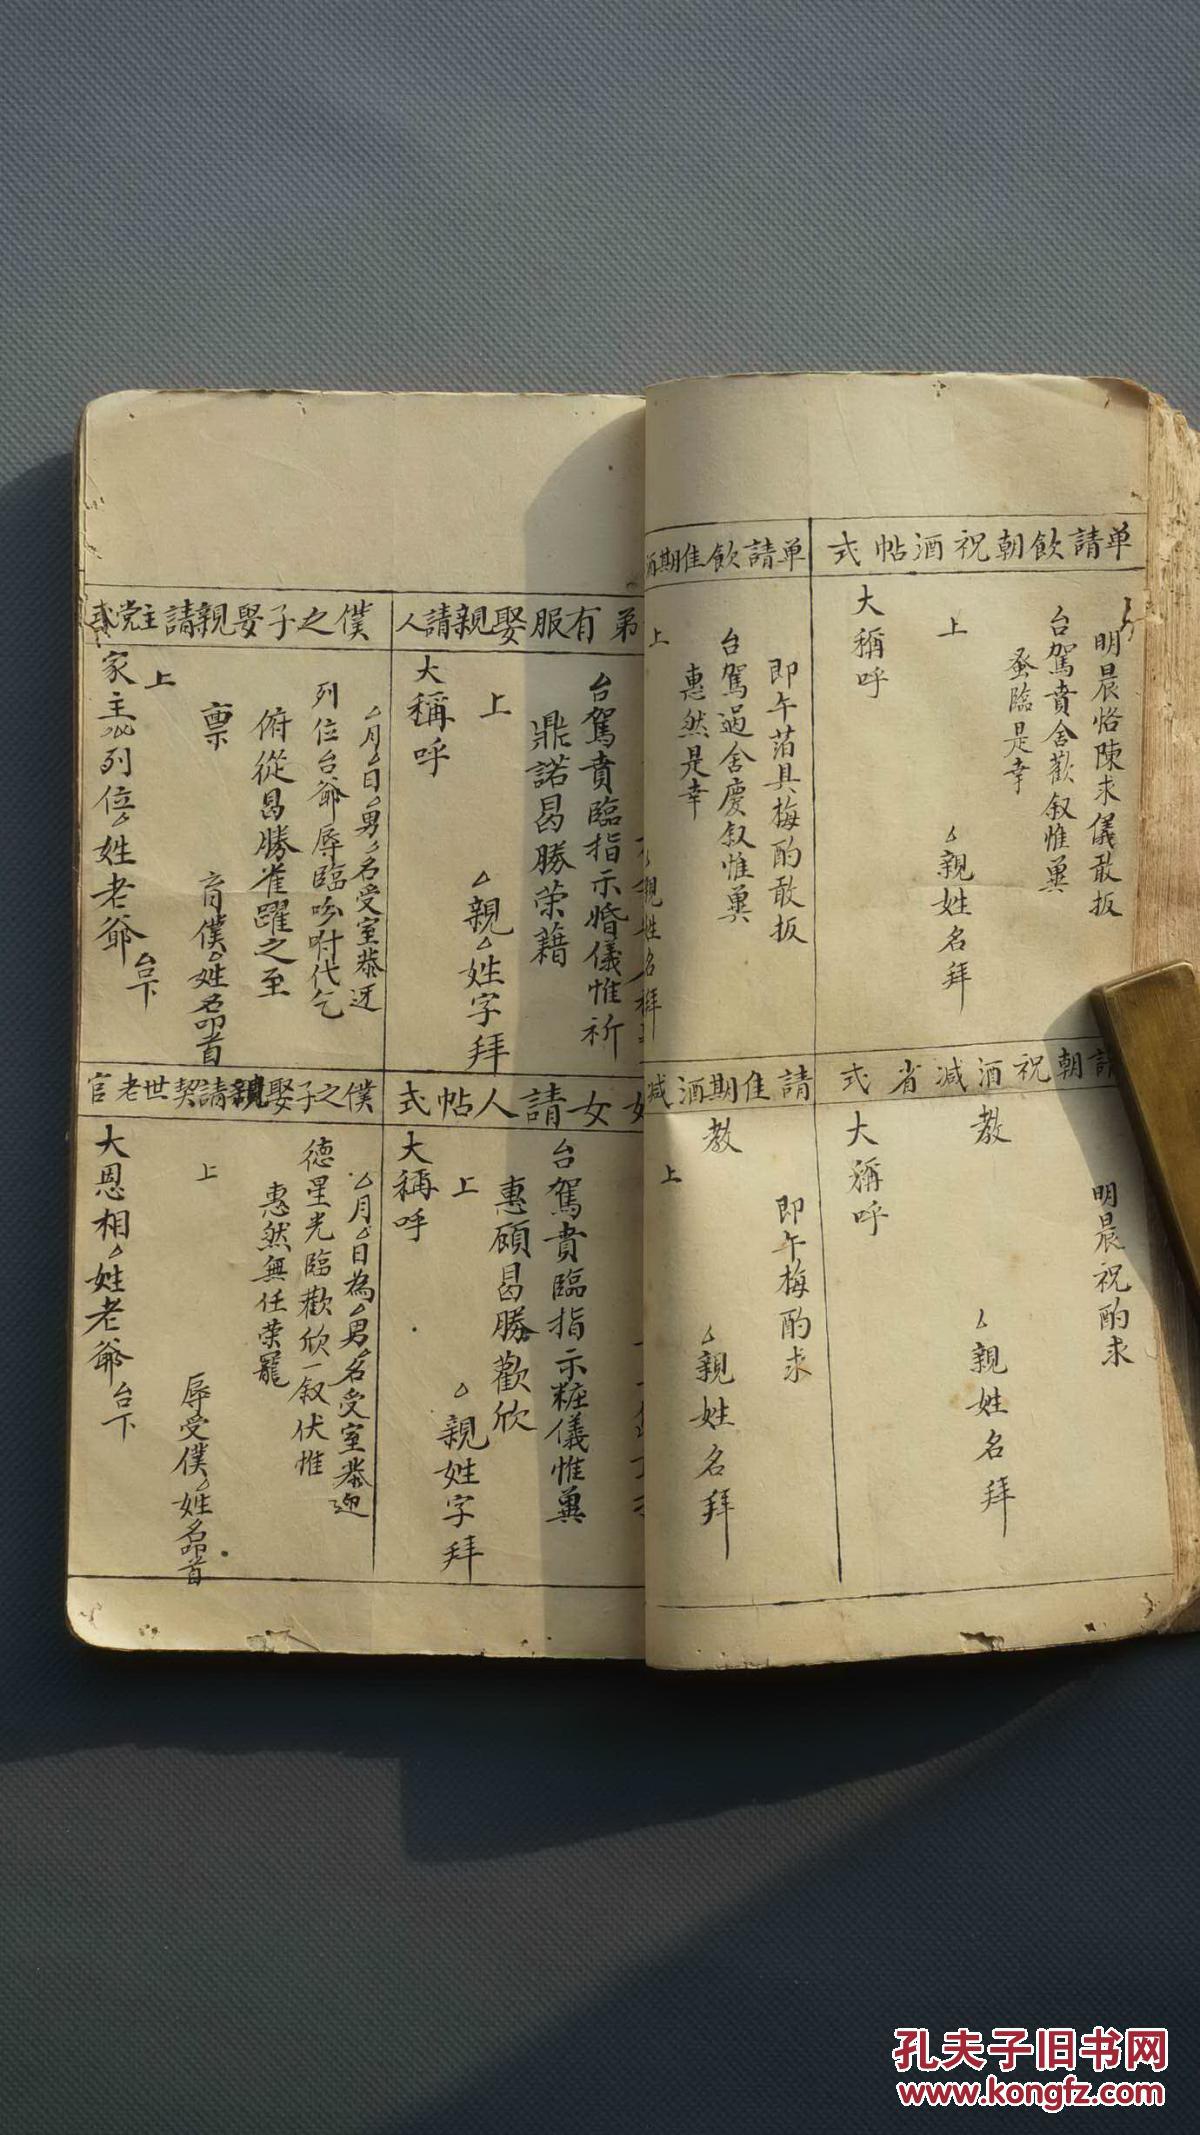 单請飲朝祝酒帖式
明晨恪陳求儀敢扳
台駕賁舍歡叙惟冀
蚤臨是幸
上
△親姓名拜
大稱呼
单請飲佳期酒
即午萡具梅酌敢扳
台駕過舍慶叙惟冀
惠然是幸
上
△親姓名拜
請朝祝酒减省式
明晨祝酌求
教
△親姓名拜
大稱呼
上
請佳期酒减
即午梅酌求
教
△親姓名拜
上
弟有服娶親請人
台駕賁臨指示婚儀惟祈
鼎諾曷勝荣藉
上
△親△姓字拜
大稱呼
僕之子娶親請主党式
△月△日男△名受室恭迓
列位台爺辱臨吩咐代乞
俯從曷勝雀躍之至
禀
育僕△姓名叩首
上
家主△列位△姓老爺台下
女請人帖式
台駕賁臨指示粧儀惟冀
惠顧曷勝歡欣
上
△親姓字拜
大稱呼
僕之子娶親請契世老官
△月△日為△男△名受室恭迎
德星光臨歡欣一叙伏惟
惠然無任荣寵
辱受僕△姓名叩首
上
大恩相△姓老爺台下
孔夫子旧书网
www.kongfz.com